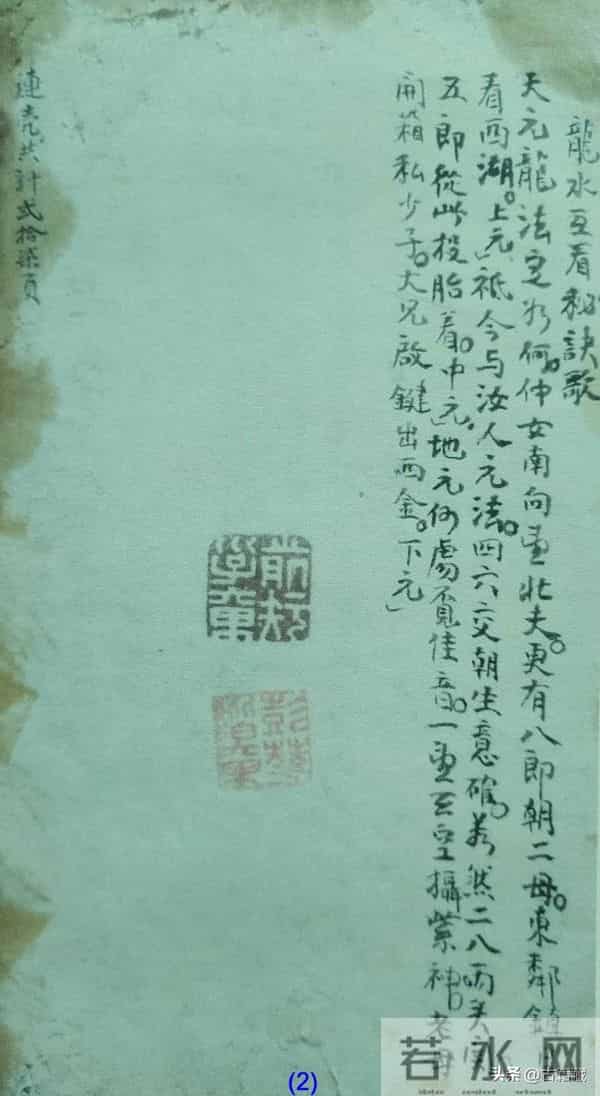 龍水互看秘訣歌
天元龍法定如何。仲女南向畫北夫。更有八郎朝二母。東鄰鎮日
看西湖。上元」祗今与汝人元法。四六交朝生意確。若然二八兩夫
五郎從此投胎着。中元」地元何處覓佳音。一畫互空攝紫神。老母
開箱私少子。大兄啟鍵出西金。下元」
連売共計弍拾柒頁
若水网
头条
(2)